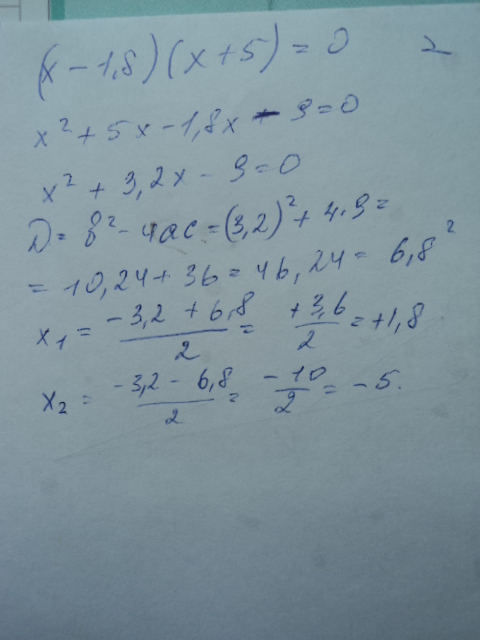 (x - 1,8)(x + 5) = 0 2
x² + 5x - 1,8x - 9 = 0
x² + 3,2x - 9 = 0
D = b² - 4ac = (3,2)² + 4·9 =
= 10,24 + 36 = 46,24 = 6,8²
x₁ = (-3,2 + 6,8)/2 = +3,6/2 = +1,8
x₂ = (-3,2 - 6,8)/2 = -10/2 = -5.